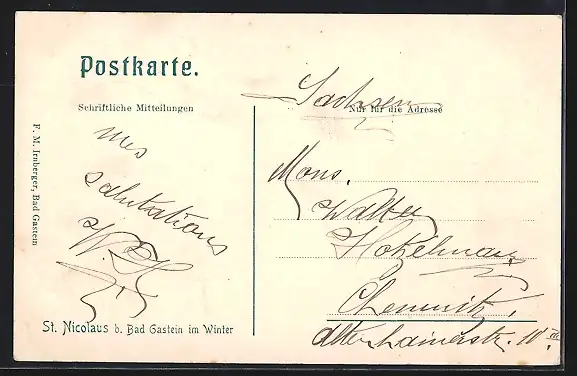 Postkarte.
Schriftliche Mitteilungen
Nur für die Adresse
Sachsen
mes
salutations
W. H.
Mons.
Walter
Chemnitz,
Altenhainerstr. 10 III.
St. Nicolaus b. Bad Gastein im Winter
F. M. Irnberger, Bad Gastein